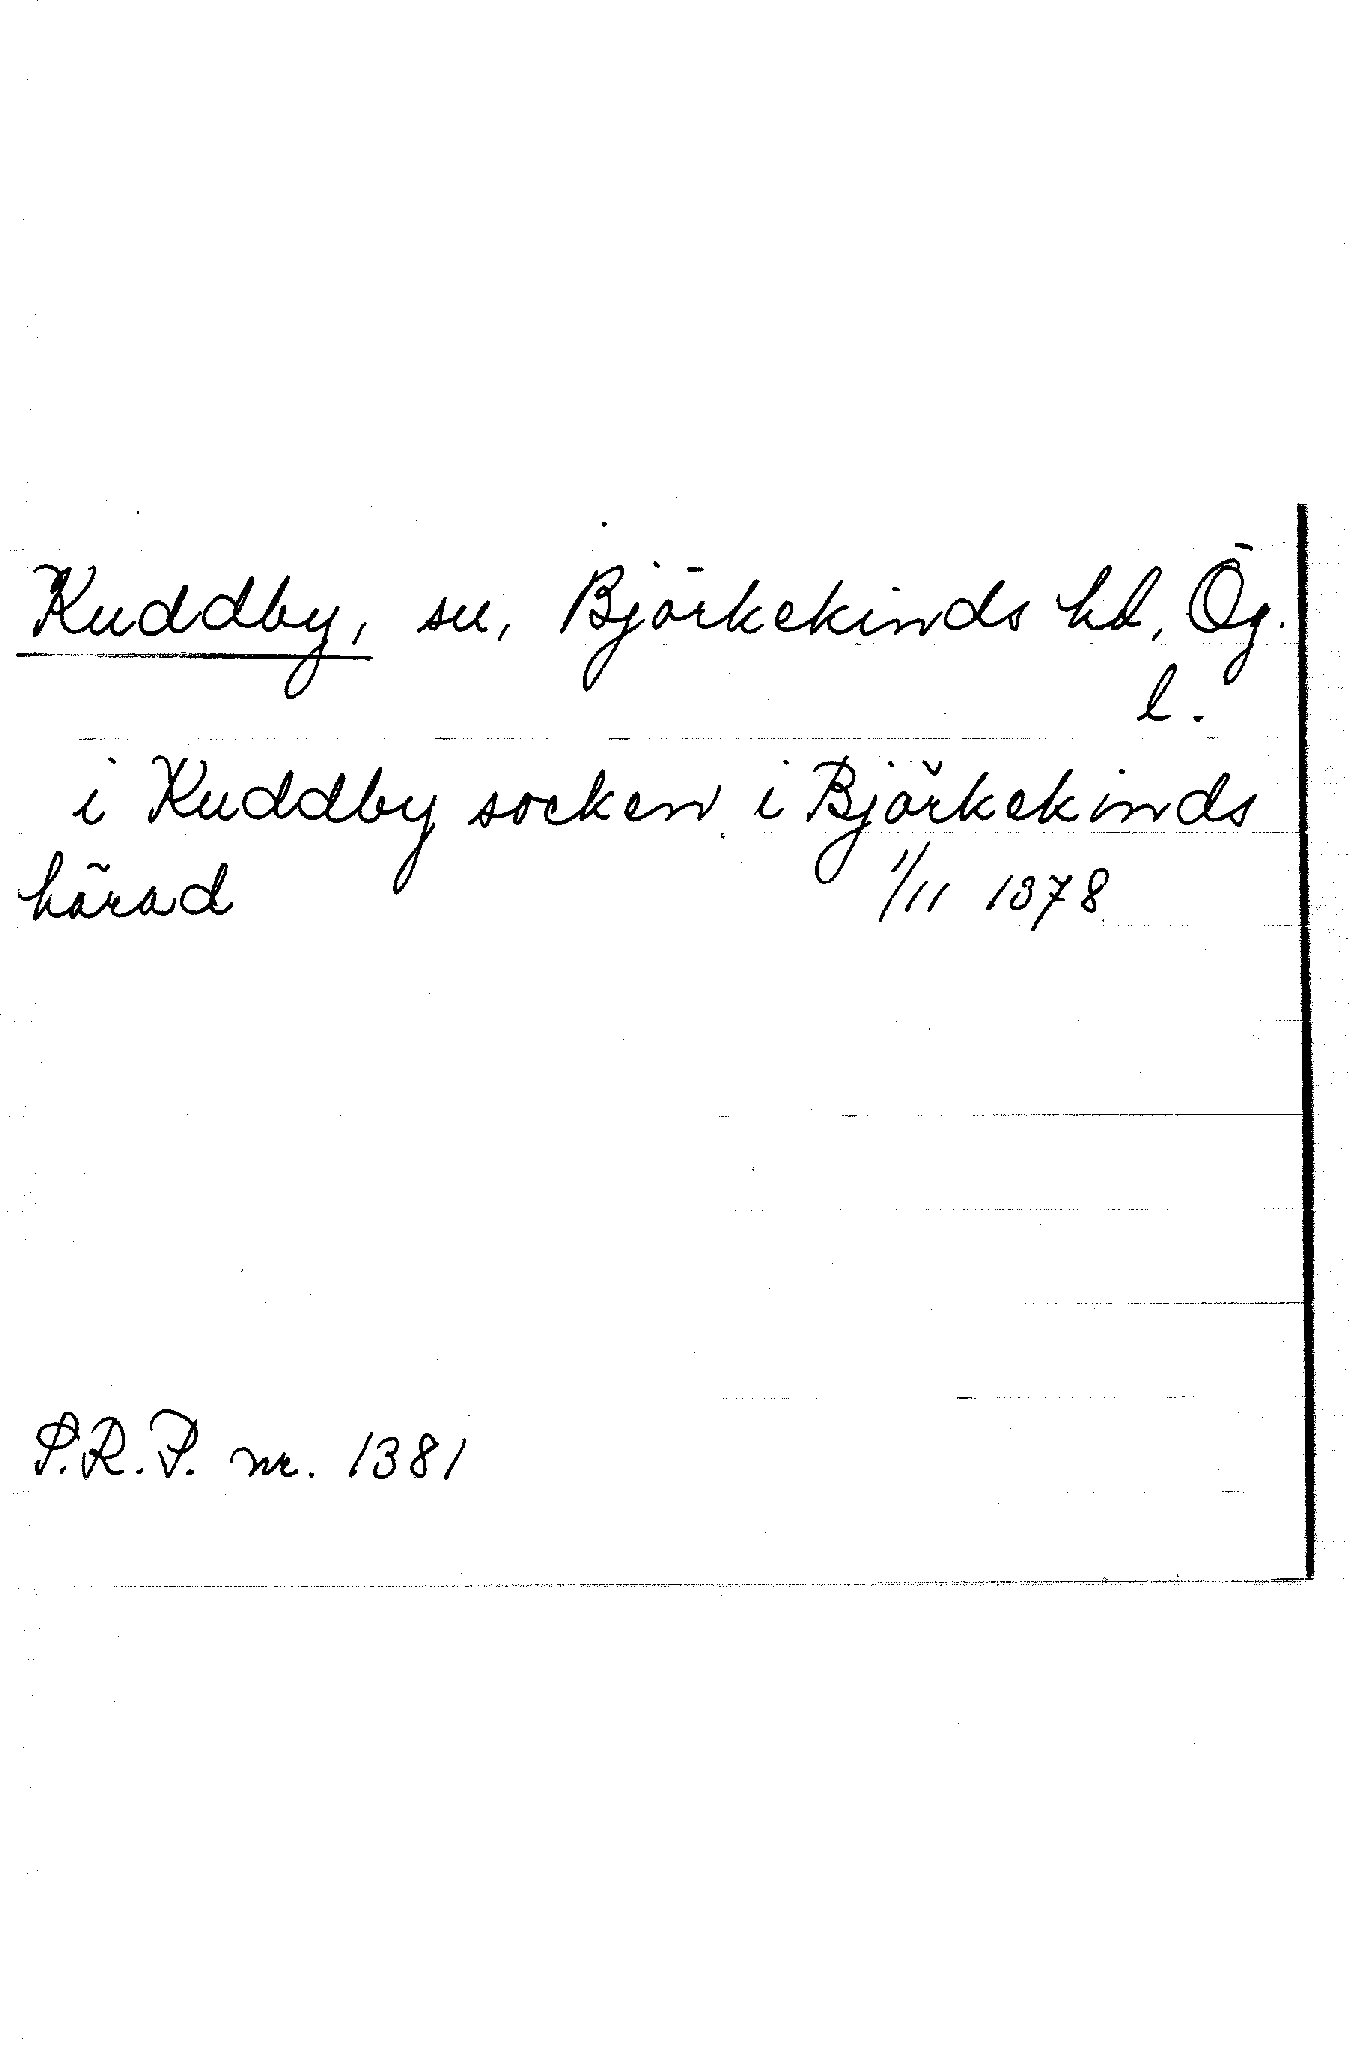 Kuddby, sn, Björkekinds hd, Ög.
l.
i Kuddby socken i Björkekinds
härad 1/11 1378
S.R.P. nr. 1381